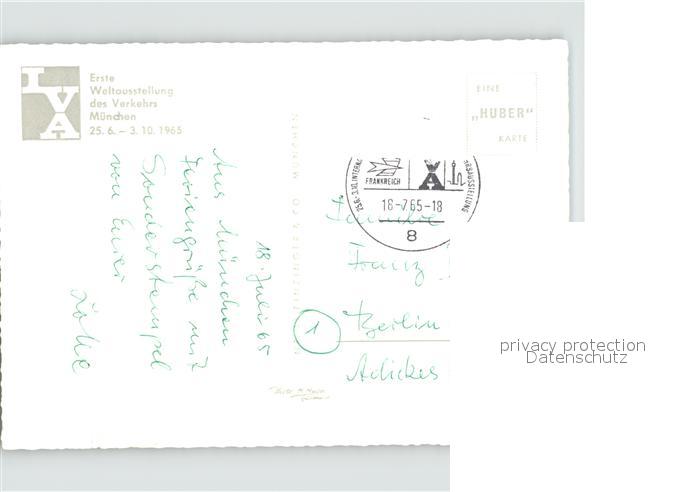 IVA
Erste
Weltausstellung
des Verkehrs
München
25. 6. – 3. 10. 1965
EINE
„HUBER"
KARTE
FRANKREICH
18-7.65-18
8
18. Juli 65
Aus München
Feriengrüße mit
Sonderstempel
von Eurer
Familie
Franz
1
Berlin
Adickes
privacy protection
Datenschutz